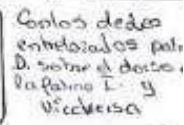 Con los dedos
entrelazados palm
D. sobre el dorso d
la palma I. y
viceversa